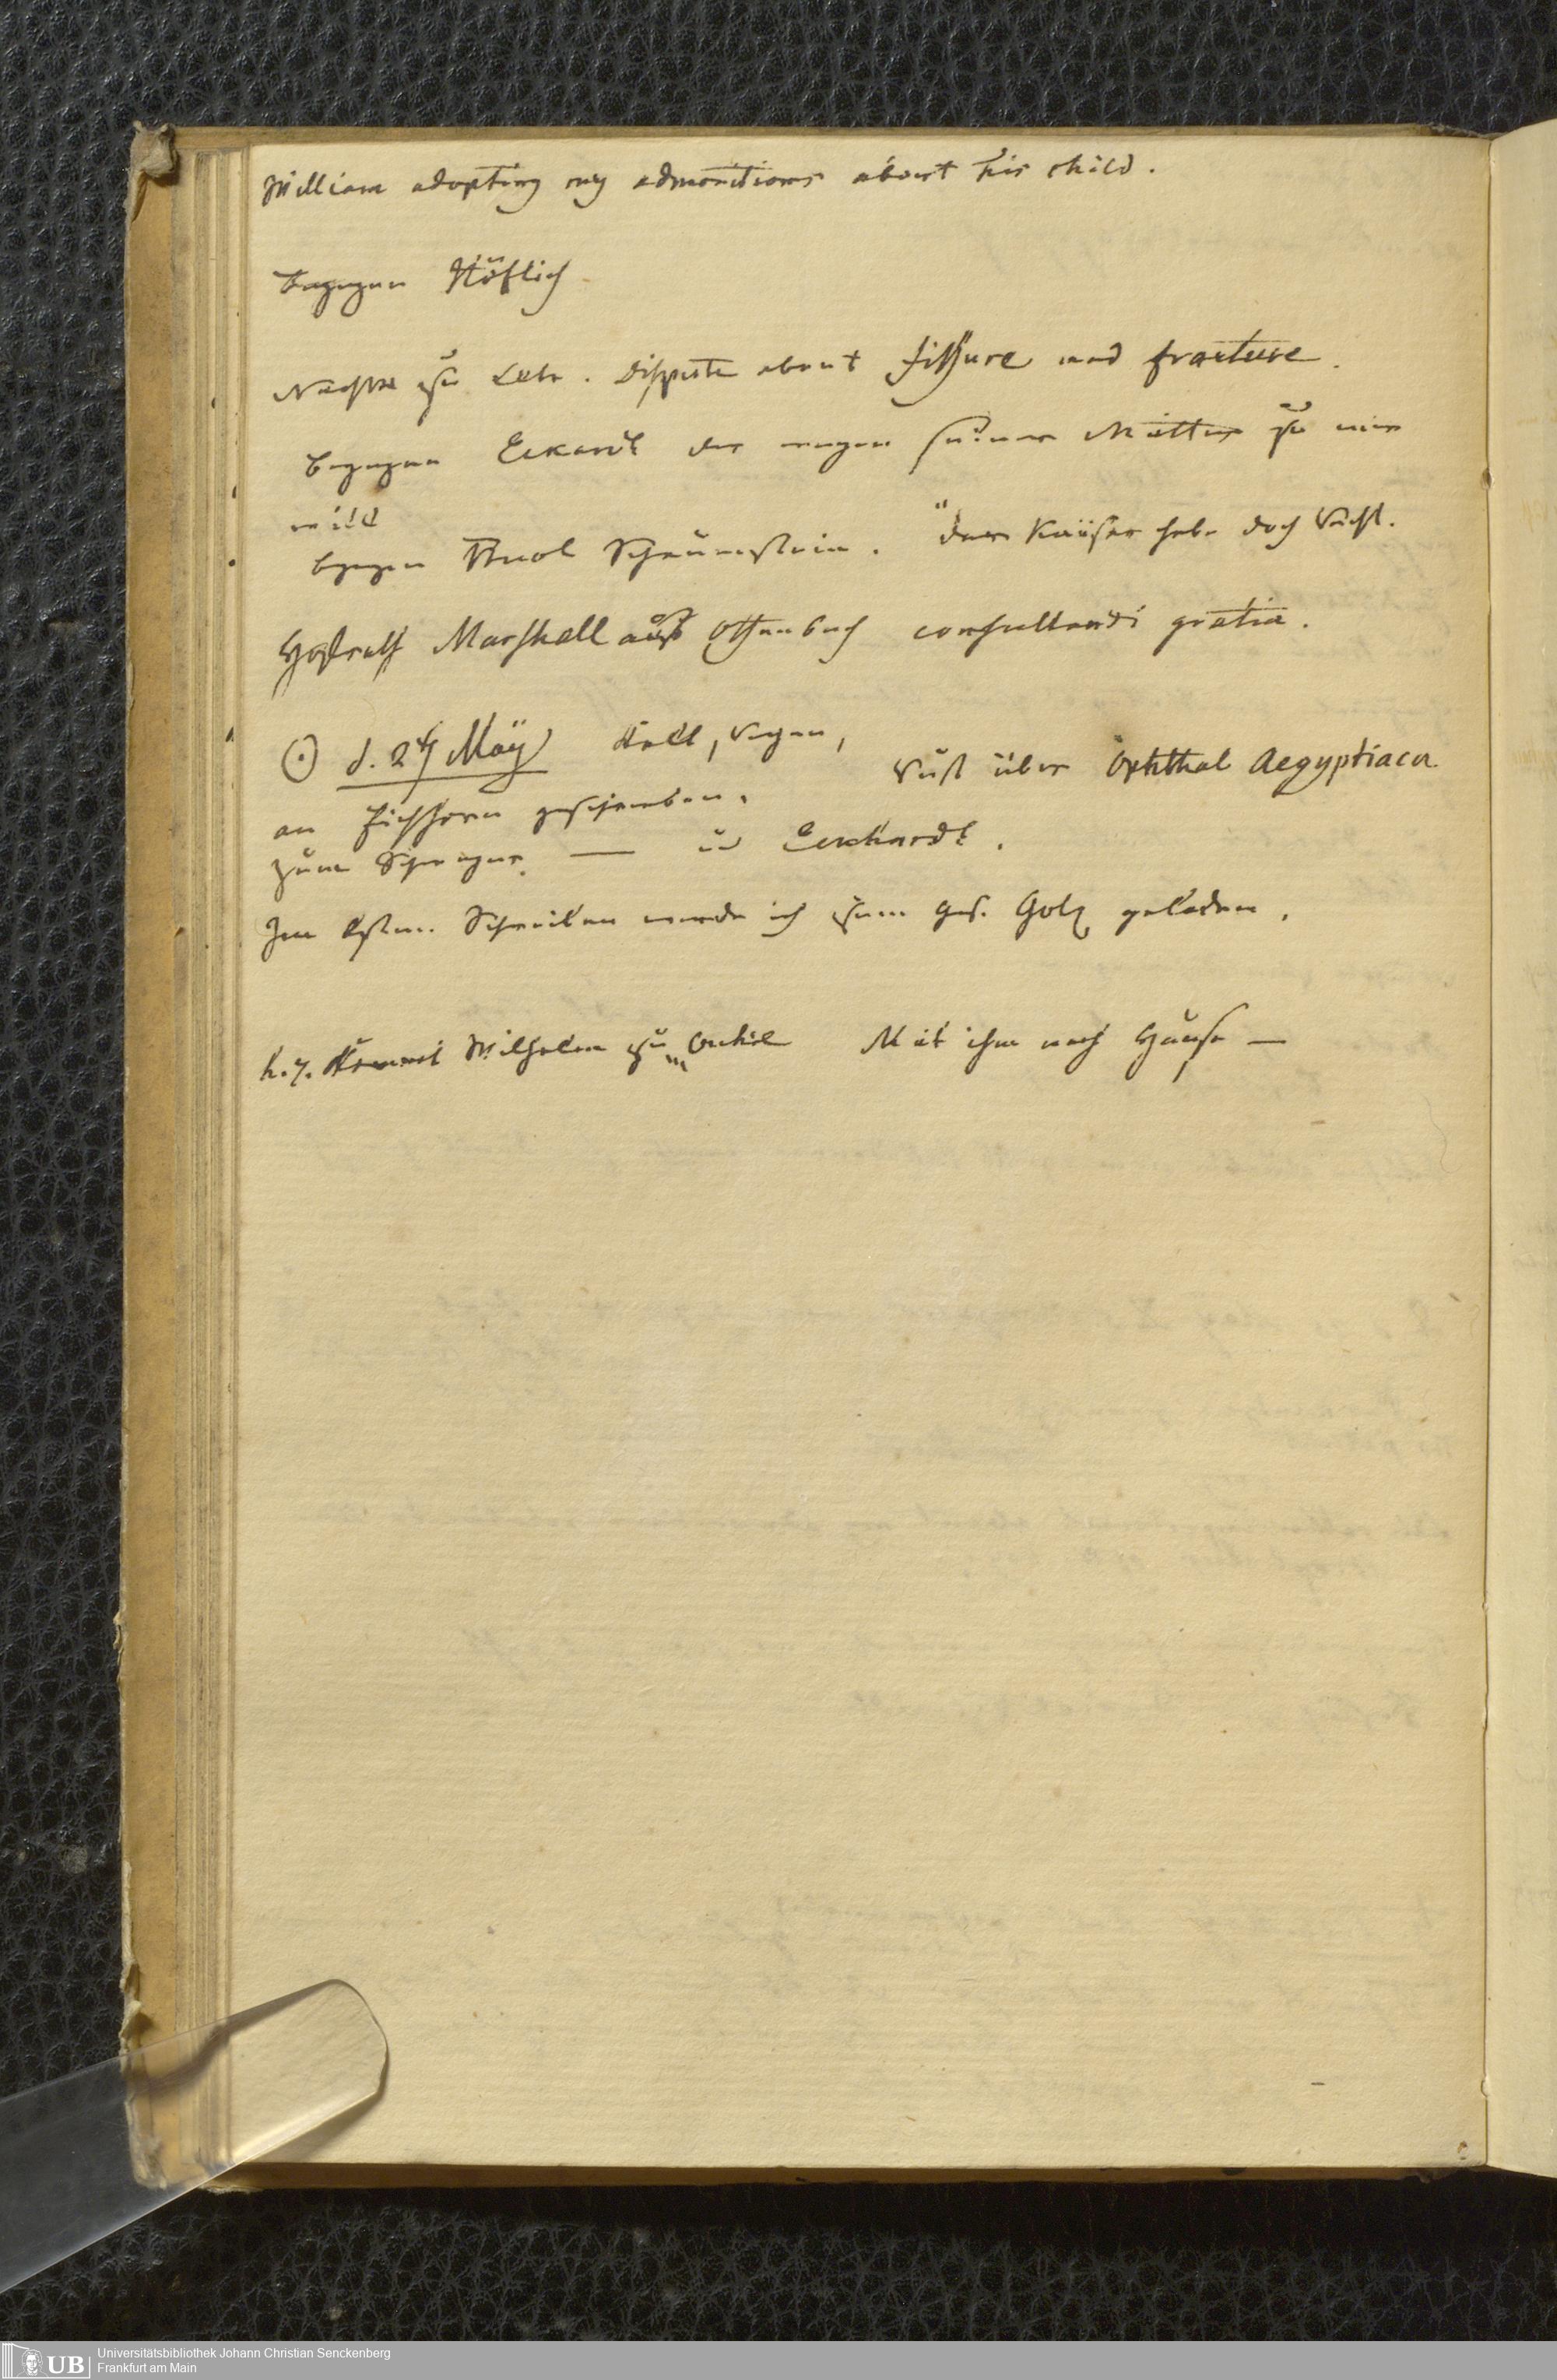 William adopting my admonitions about his child.
begegnen Höflich
Nachts zu Dispute about fissure and fracture.
begegnen Eckardt der wegen seiner Mutter zu mir
will
begegn Buol Schauenstein. "der Kaiser habe doch Recht.
Hofrath Marshall aus Offenbach consultandi gratia.
☉ d. 24 May Kalt, Regen,
Rust über Ophthal Aegyptiaca
an Eichhorn geschrieben.
zum — u Eeckhardt.
Im Schreiben werde ich zum Ges. Golz geladen.
h. 7. kommt Wilhelm zu Mit ihm nach Hause —
Universitätsbibliothek Johann Christian Senckenberg
Frankfurt am Main
UB